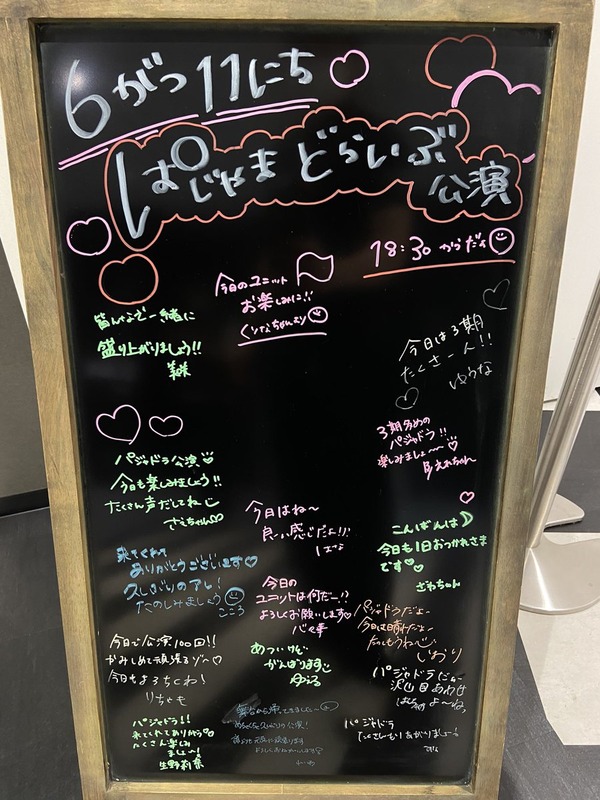 6がつ11にち
ぱじゃまどらいぶ
公演
18:30からだよ
今日のユニット
お楽しみに!!
くりなちゃんより
皆んなで一緒に
盛り上がりましょう!!
今日は3期
たくさーん!!
ゆうな
3期多めの
パジャドラ!!
楽しみましょ〜〜♡
パジャドラ公演♡
今日も楽しみましょう!!
たくさん声だしてね
さえちゃん♡
今日はね〜
良い感じだよ!!
はな
こんばんは
今日も1日おつかれさま
です♡
さわちゃん
来てくれて
ありがとうございます♡
久しぶりのアレ!
たのしみましょう
こころ
今日の
ユニットは何だー!?
よろしくお願いします♡
パジャドラだよー
今日は晴れだよー
たのしもうね
しおり
今日で公演100回!!
かみしめて頑張るゾ〜♡
今日もよろちくわ!
りちゃも
あついけど
がんばります
ゆうる
パジャドラだよ
沢山目あわせ
ぱちぱちよ〜ね
パジャドラ!!
来てくれてありがとう
たくさん楽しみ
ましょ〜!
生野莉奈
公演!
よろしくお願いします♡
パジャドラ
たくさんもりあがりましょー!